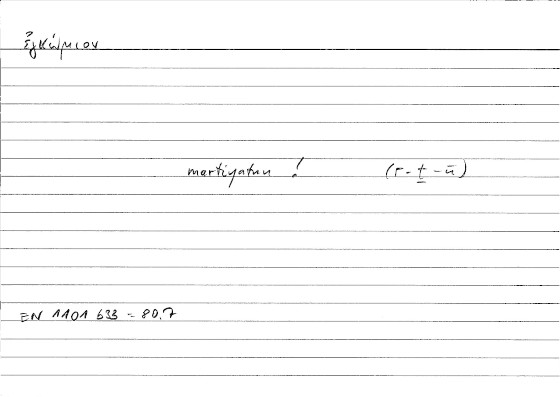 ἐγκώμιον
martiyatun ! (r-ṯ-ū)
EN 1101 633 = 80.7